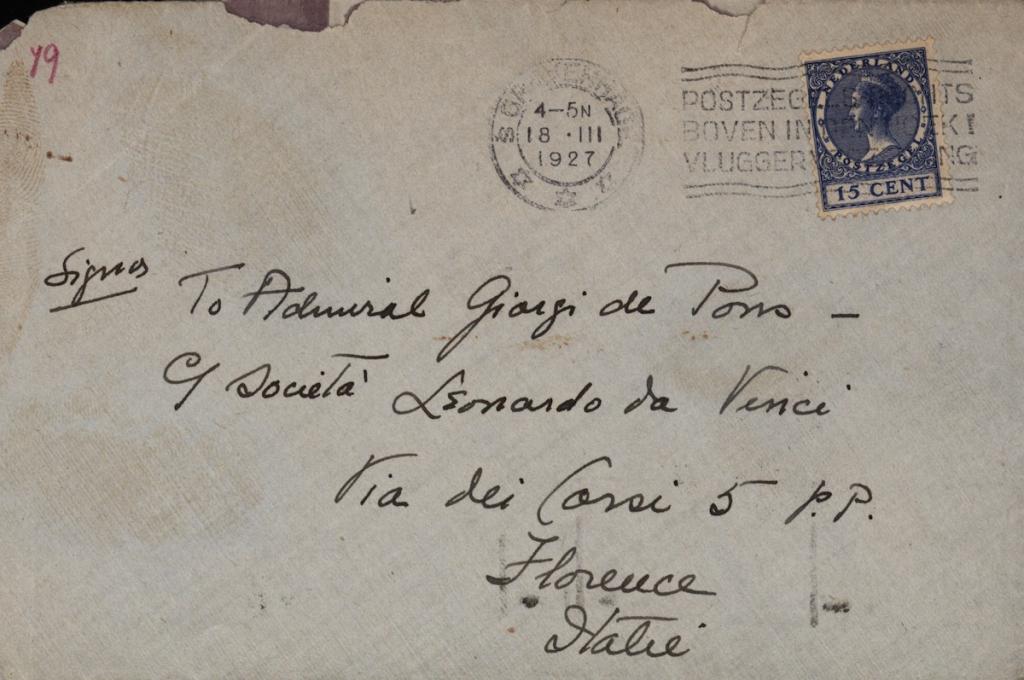 79
S GRAVENHAGE
4-5N
18 · III
1927
POSTZEGELS RECHTS
BOVEN IN DEN HOEK!
VLUGGER
NEDERLAND
POSTZEGEL
15 CENT
To Admiral Giorgi de Pons –
c/ Società Leonardo da Vinci
Via dei Corsi 5 P.P.
Florence
Italië